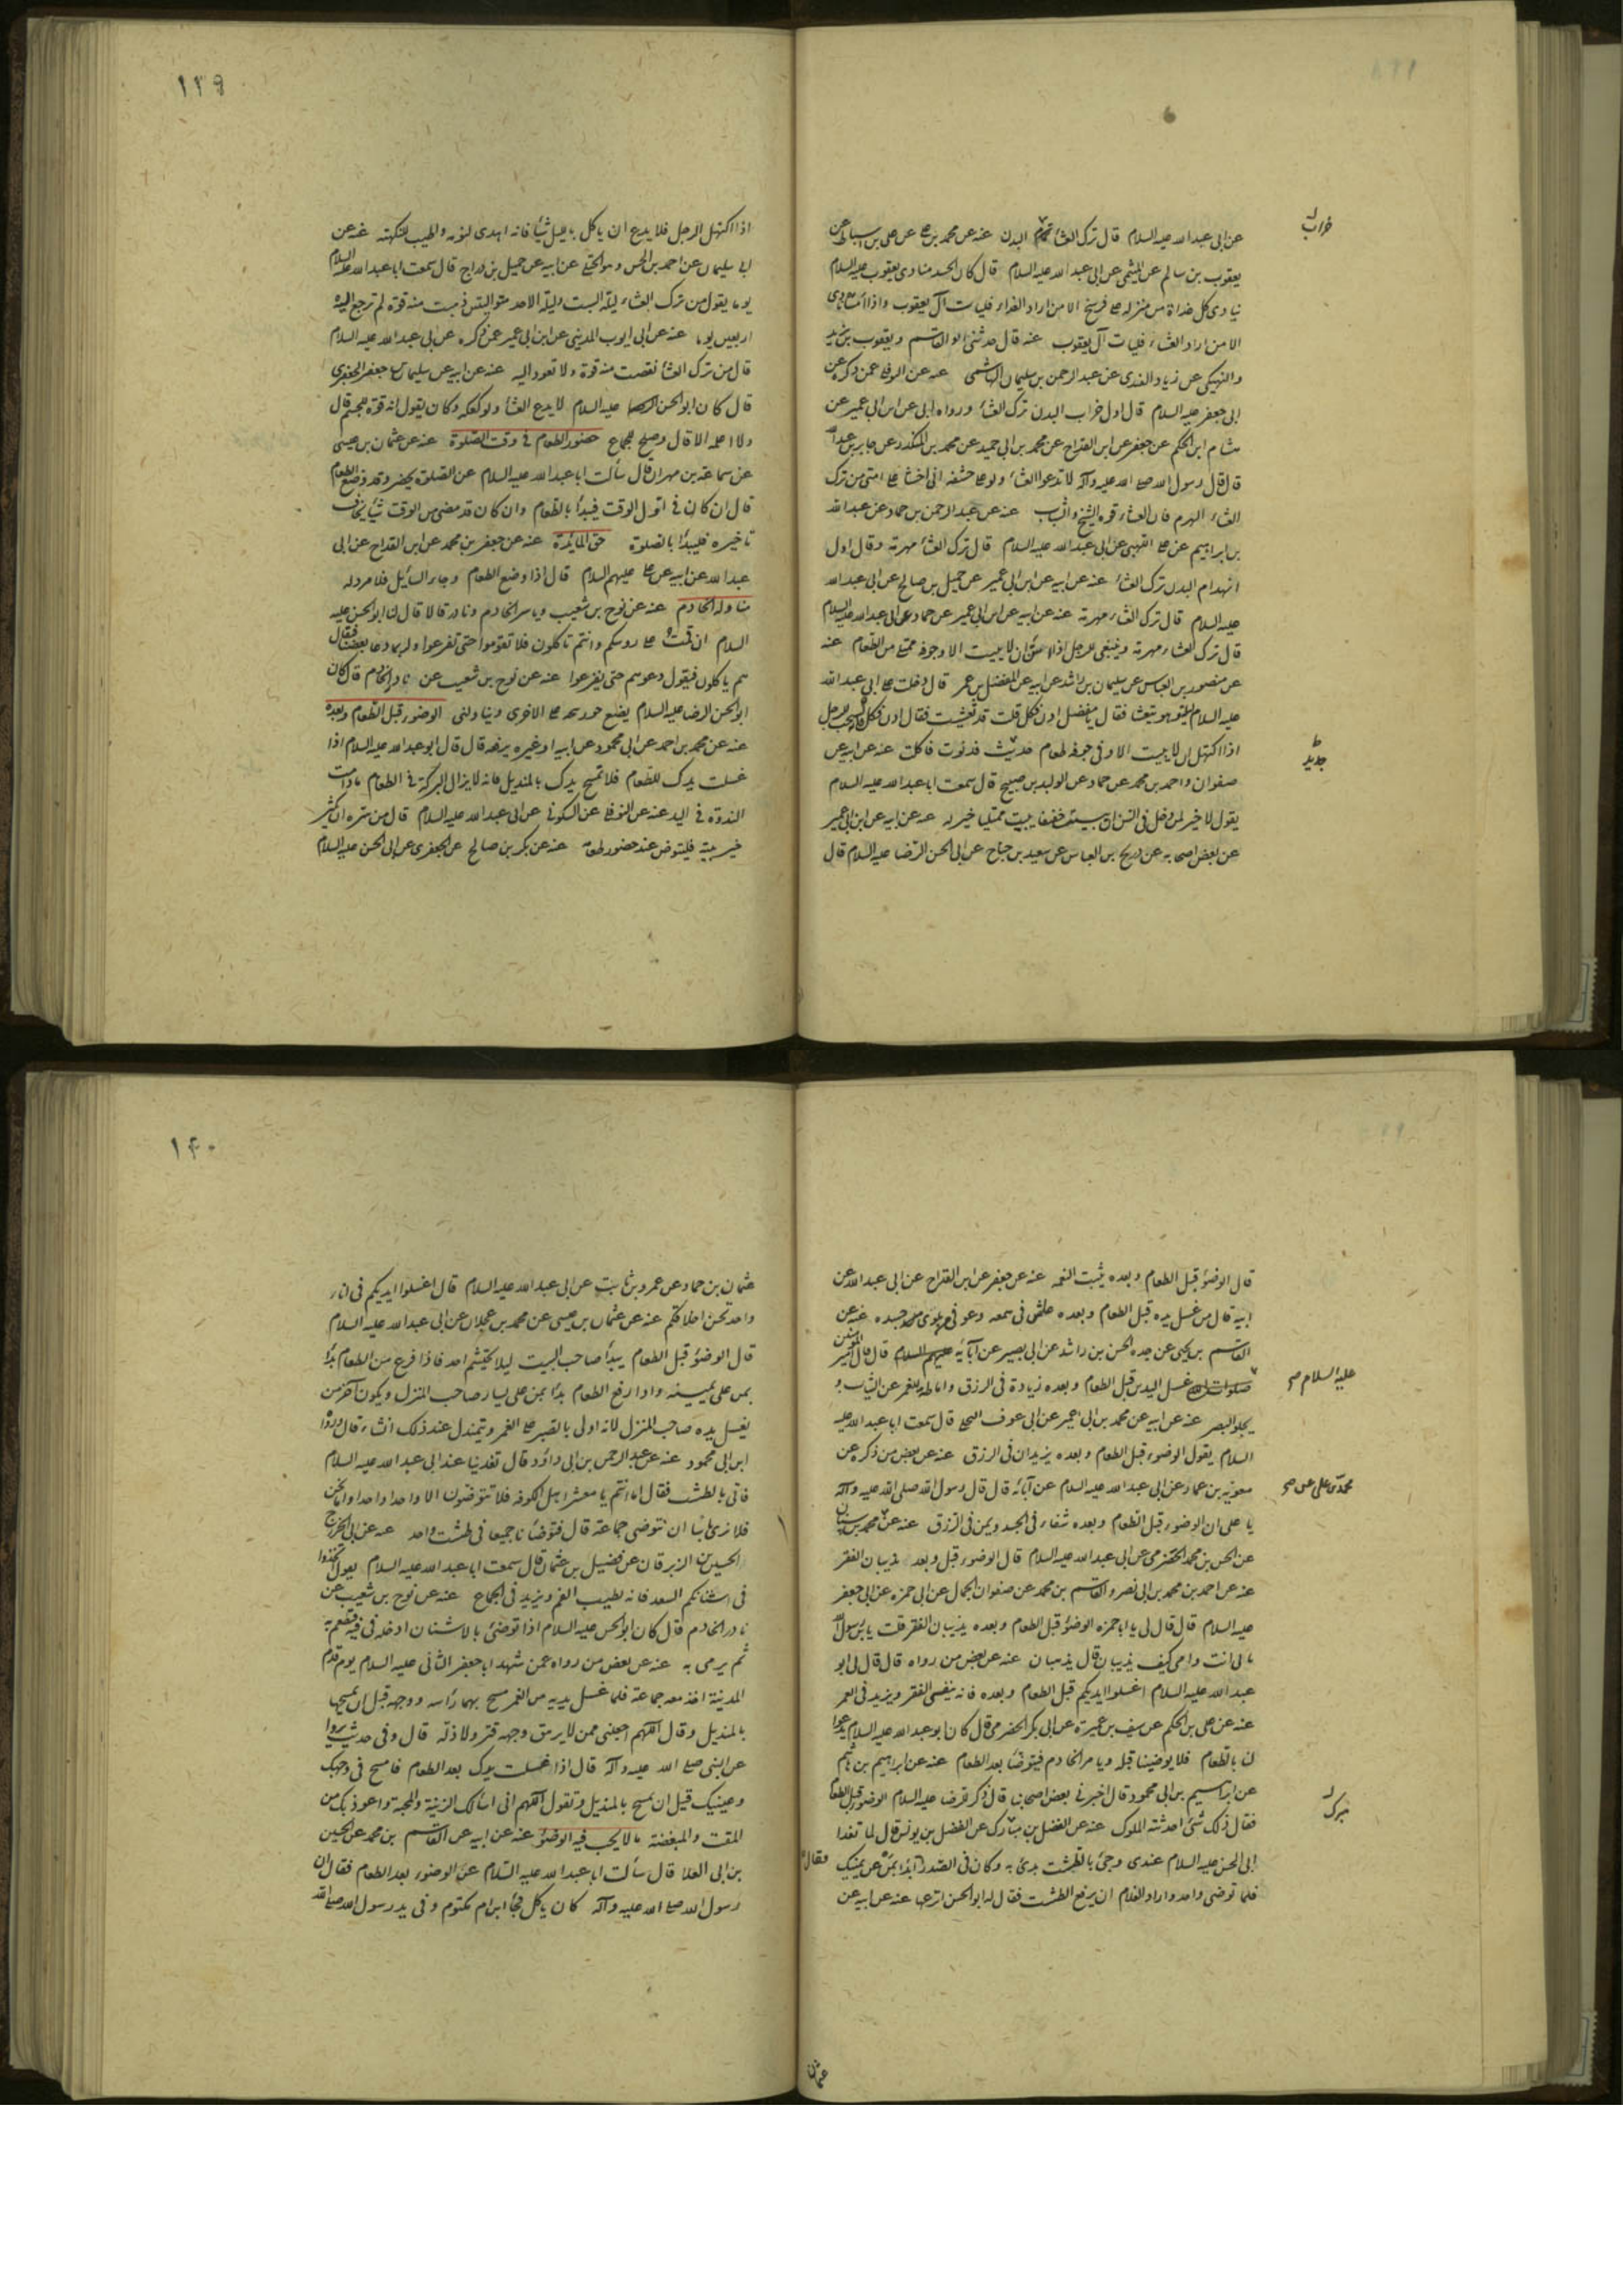 عن ابی عبد الله علیه السلام قال ترک العشاء البدن عنه عن محمد بن علی عن علی بن اسباط عن
خراب
یعقوب بن سالم عن المیثمی عن ابی عبد الله علیه السلام قال کان لجسد منادی یعقوب علیه السلام
ینادی کل غداة من منزله علی فرسخ الا من اراد الغداء فلیات آل یعقوب واذا امسی نادی
الا من اراد العشاء فلیات آل یعقوب عنه قال حدثنی ابو القاسم ویعقوب بن یزید
والنهیکی عن زیاد القندی عن عبد الرحمن بن سلیمان الهاشمی عنه عن النوفلی عمن ذکره عن
ابی جعفر علیه السلام قال اول خراب البدن ترک العشاء ورواه ابی عن ابن ابی عمیر عن
هشام ابن الحکم عن جعفر عن ابن القداح عن محمد بن ابی حمید عن محمد بن المنکدر عن جابر بن عبد الله
قال قال رسول الله صلی الله علیه وآله لا تدعوا العشاء ولو علی حشفة انی اخشی علی امتی من ترک
العشاء الهرم فان العشاء قوة الشیخ والشاب عنه عن عبد الرحمن بن حماد عن عبد الله
بن ابراهیم عن علی اللهبی عن ابی عبد الله علیه السلام قال ترک العشاء مهرمة وقال اول
انهدام البدن ترک العشاء عنه عن ابیه عن ابن ابی عمیر عن جمیل بن صالح عن ابی عبد الله
علیه السلام قال ترک العشاء مهرمة عنه عن ابیه عن ابن ابی عمیر عن حماد عن ابی عبد الله علیه السلام
قال ترک العشاء مهرمة وینبغی للرجل اذا اسن ان لا یبیت الا وجوفه ممتلی من الطعام عنه
عن منصور بن العباس عن سلیمان بن راشد عن ابیه عن المفضل بن عمر قال دخلت علی ابی عبد الله
علیه السلام لیلة وهو یتعشی فقال یا مفضل ادن فکل قلت قد تعشیت فقال ادن فکل فانه یستحب للرجل
اذا اکتهل ان لا یبیت الا وفی جوفه طعام حدیث فدنوت فاکلت عنه عن ابیه عن
جدید
صفوان واحمد بن محمد عن حماد عن الولید بن صبیح قال سمعت ابا عبد الله علیه السلام
یقول لا خیر لمن دخل فی السن ان یبیت خفیفا یبیت ممتلیا خیر له عنه عن ابیه عن ابن ابی عمیر
عن بعض اصحابه عن ذریح بن العباس عن سعید بن جناح عن ابی الحسن الرضا علیه السلام قال
۱۳۹
اذا اکتهل الرجل فلا یدع ان یاکل باللیل شیئا فانه اهدی لنومه واطیب للنکهة عنه عن
ابی سلیمان عن احمد بن الحسن وهو الجبلی عن ابیه عن جمیل بن دراج قال سمعت ابا عبد الله علیه السلام
یوما یقول من ترک العشاء لیلة السبت ولیلة الاحد متوالیتین ذهبت منه قوة لم ترجع الیه
اربعین یوما عنه عن ابی ایوب المدینی عن ابن ابی عمیر عمن ذکره عن ابی عبد الله علیه السلام
قال من ترک العشاء نقصت منه قوة ولا تعود الیه عنه عن ابیه عن سلیمان بن جعفر الجعفری
قال کان ابو الحسن علیه السلام لا یدع العشاء ولو کعکة وکان یقول انه قوة للجسم قال
ولا اعلمه الا قال وصلح للجماع حضور الطعام فی وقت الصلوة عنه عن عثمان بن عیسی
عن سماعة بن مهران قال سألت ابا عبد الله علیه السلام عن الصلوة تحضر وقد وضع الطعام
قال ان کان فی اول الوقت فیبدأ بالطعام وان کان قد مضی من الوقت شیئا یخاف
تاخیره فلیبدأ بالصلوة حق المایدة عنه عن جعفر بن محمد عن ابن القداح عن ابی
عبد الله عن ابیه عن علی علیهم السلام قال اذا وضع الطعام وجاء السائل فلا مرد له
مناولة الخادم عنه عن نوح بن شعیب ویاسر الخادم ونادر قالا قال لنا ابو الحسن علیه
السلام ان قمت علی روسکم وانتم تاکلون فلا تقوموا حتی تفرغوا ولربما دعا بعضنا فیقال
هم یاکلون فیقول دعوهم حتی یفرغوا عنه عن نوح بن شعیب عن نادر الخادم قال کان
ابو الحسن الرضا علیه السلام یضع جوزینجة علی الاخری ویناولنی الوضوء قبل الطعام وبعده
عنه عن محمد بن احمد عن ابی محمود عن ابیه او غیره یرفعه قال قال ابو عبد الله علیه السلام اذا
غسلت یدک للطعام فلا تمسح یدک بالمندیل فانه لا یزال البرکة فی الطعام ما دامت
النداوة فی الید عنه عن النوفلی عن السکونی عن ابی عبد الله علیه السلام قال من سره ان یکثر
خیر بیته فلیتوض عند حضور طعامه عنه عن بکر بن صالح عن الجعفری عن ابی الحسن علیه السلام
قال الوضوء قبل الطعام وبعده یثبت النعمة عنه عن جعفر عن ابن القداح عن ابی عبد الله عن
ابیه قال من غسل یده قبل الطعام وبعده عاش فی سعة وعوفی من بلوی جسده عنه عن
القاسم بن یحیی عن جده الحسن بن راشد عن ابی بصیر عن آبائه علیهم السلام قال قال امیر المؤمنین
علیه السلام صح
غسل الیدین قبل الطعام وبعده زیادة فی الرزق واماطة للغمر عن الثیاب و
یجلو البصر عنه عن ابیه عن محمد بن ابی عمیر عن ابی عوف البجلی قال سمعت ابا عبد الله علیه
السلام یقول الوضوء قبل الطعام وبعده یزیدان فی الرزق عنه عن بعض من ذکره عن
معویة بن عمار عن ابی عبد الله علیه السلام عن آبائه قال قال رسول الله صلی الله علیه وآله
یا علی ان الوضوء قبل الطعام وبعده شفاء فی الجسد ویمن فی الرزق عنه عن محمد بن سنان
عن الحسن بن محمد الحضرمی عن ابی عبد الله علیه السلام قال الوضوء قبل وبعد یذیبان الفقر
عنه عن احمد بن محمد بن ابی نصر والقاسم بن محمد عن صفوان الجمال عن ابی حمزة عن ابی جعفر
علیه السلام قال قال لی یا ابا حمزة الوضوء قبل الطعام وبعده یذیبان الفقر قلت یا بن رسول الله
بابی انت وامی کیف یذیبان قال یذهبان عنه عن بعض من رواه قال قال لی ابو
عبد الله علیه السلام اغسلوا ایدیکم قبل الطعام وبعده فانه ینفی الفقر ویزید فی العمر
عنه عن علی بن الحکم عن سیف بن عمیرة عن ابی بکر الحضرمی قال کان ابو عبد الله علیه السلام یدعوا
لنا بالطعام فلا یوضینا قبله ویامر الخادم فیتوضأ بعد الطعام عنه عن ابراهیم بن هاشم
عن ابراهیم بن ابی محمود قال اخبرنی بعض اصحابنا قال ذکر للرضا علیه السلام الوضوء قبل الطعام
فقال ذلک شئ احدثته الملوک عنه عن الفضل بن مبارک عن الفضل بن یونس قال لما تغدا
ابی الحسن علیه السلام عندی وجئ بالطشت بدئ به وکان فی الصدر فقال ابدأ بمن عن یمینک
فلما توضی واحد واراد الغلام ان یرفع الطشت فقال له ابو الحسن اترعها عنه عن ابیه عن
عثمان
۱۴۰
عثمان بن حماد عن عمرو بن ثابت عن ابی عبد الله علیه السلام قال اغسلوا ایدیکم فی اناء
واحد تحسن اخلاقکم عنه عن عثمان بن عیسی عن محمد بن عجلان عن ابی عبد الله علیه السلام
قال الوضوء قبل الطعام یبدأ صاحب البیت لیلا یحتشم احد فاذا فرغ من الطعام بدأ
بمن علی یمینه واذا رفع الطعام بدأ بمن علی یسار صاحب المنزل ویکون آخر من
یغسل یده صاحب المنزل لانه اولی بالصبر علی الغمر ویتمندل عند ذلک ان شاء قال ورواه
ابن ابی محمود عنه عن عبد الرحمن بن ابی داؤد قال تغدینا عند ابی عبد الله علیه السلام
فاتی بالطشت فقال اما انتم یا معشر اهل الکوفه فلا تتوضون الا واحدا واحدا واما نحن
فلا نری بأسا ان نتوضی جماعة قال فتوضأنا جمیعا فی طشت واحد عنه عن ابی الخزرج
الحسین بن الزبرقان عن فضیل بن عثمان قال سمعت ابا عبد الله علیه السلام یقول اتخذوا
فی اشنانکم السعد فانه یطیب الفم ویزید فی الجماع عنه عن نوح بن شعیب عن
نادر الخادم قال کان ابو الحسن علیه السلام اذا توضئ بالاشنان ادخله فی فیه فتطعم به
ثم یرمی به عنه عن بعض من رواه عمن شهد ابا جعفر الثانی علیه السلام یوم قدم
المدینة تغذ معه جماعة فلما غسل یدیه من الغمر مسح بهما رأسه ووجهه قبل ان یمسحها
بالمندیل وقال اللهم اجعلنی ممن لا یرهق وجهه قتر ولا ذلة قال وفی حدیث یروا
عن النبی صلی الله علیه وآله قال اذا غسلت یدک بعد الطعام فامسح فی وجهک
وعینیک قبل ان تمسح بالمندیل وتقول اللهم انی اسألک الزینة والمحبة واعوذ بک من
المقت والمبغضة ما لا یجب فیه الوضوء عنه عن ابیه عن القاسم بن محمد عن الحسین
بن ابی العلا قال سألت ابا عبد الله علیه السلام عن الوضوء بعد الطعام فقال ان
رسول الله صلی الله علیه وآله کان یاکل فجأ ابن ام مکتوم وفی ید رسول الله صلی الله